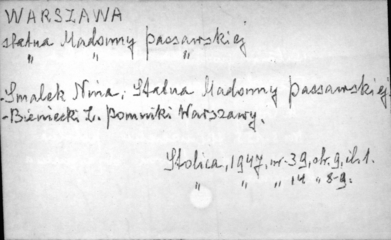 WARSZAWA
statua Madonny passawskiej
" " "
-Smalek Nina: Statua Madonny passawskiej.
-Bieniecki Z. Pomniki Warszawy.
Stolica, 1947, nr. 39, str. 9, il. 1.
" " " 14 " 8-9.